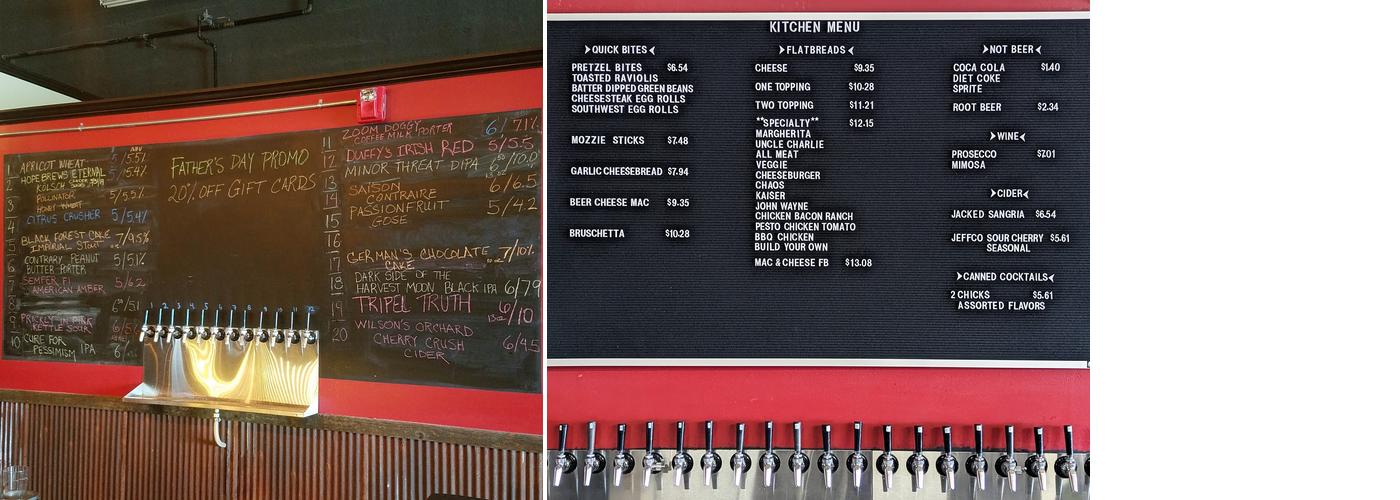 1 APRICOT WHEAT 5/5.5%
2 HOPE BREWS ETERNAL 5/5.4%
KÖLSCH
3 POLLINATOR 5/5.5%
HONEY WHEAT
4 CITRUS CRUSHER 5/5.4%
5 BLACK FOREST CAKE 7/9.5%
IMPERIAL STOUT
6 CONTRARY PEANUT 5/5.1%
BUTTER PORTER
7 SEMPER FI 5/6.2
AMERICAN AMBER
8
9 PRICKLY IN PINK
KETTLE SOUR
10 CURE FOR
PESSIMISM IPA
FATHER'S DAY PROMO
20% OFF GIFT CARDS
11 ZOOM DOGGY 6/7.1%
COFFEE MILK PORTER
12 DUFFY'S IRISH RED 5/5.5
13 MINOR THREAT DIPA
14 SAISON 6/6.5
CONTRAIRE
15 PASSIONFRUIT 5/4.2
GOSE
16
17 GERMAN'S CHOCOLATE 7/10%
CAKE
18 DARK SIDE OF THE
HARVEST MOON BLACK IPA 6/7.9
19 TRIPEL TRUTH 6/10
20 WILSON'S ORCHARD
CHERRY CRUSH 6/4.5
CIDER
KITCHEN MENU
QUICK BITES
PRETZEL BITES $6.54
TOASTED RAVIOLIS
BATTER DIPPED GREEN BEANS
CHEESESTEAK EGG ROLLS
SOUTHWEST EGG ROLLS
MOZZIE STICKS $7.48
GARLIC CHEESEBREAD $7.94
BEER CHEESE MAC $9.35
BRUSCHETTA $10.28
FLATBREADS
CHEESE $9.35
ONE TOPPING $10.28
TWO TOPPING $11.21
**SPECIALTY** $12.15
MARGHERITA
UNCLE CHARLIE
ALL MEAT
VEGGIE
CHEESEBURGER
CHAOS
KAISER
JOHN WAYNE
CHICKEN BACON RANCH
PESTO CHICKEN TOMATO
BBQ CHICKEN
BUILD YOUR OWN
MAC & CHEESE FB $13.08
NOT BEER
COCA COLA $1.40
DIET COKE
SPRITE
ROOT BEER $2.34
WINE
PROSECCO $7.01
MIMOSA
CIDER
JACKED SANGRIA $6.54
JEFFCO SOUR CHERRY $5.61
SEASONAL
CANNED COCKTAILS
2 CHICKS $5.61
ASSORTED FLAVORS